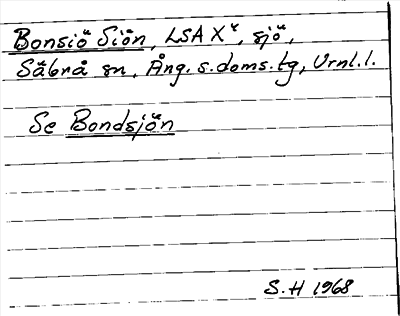 Bonsiö Siön, LSA X", sjö,
Säbrå sn, Ång. s. doms. tg, Urnl. l.
Se Bondsjön
S. H 1968